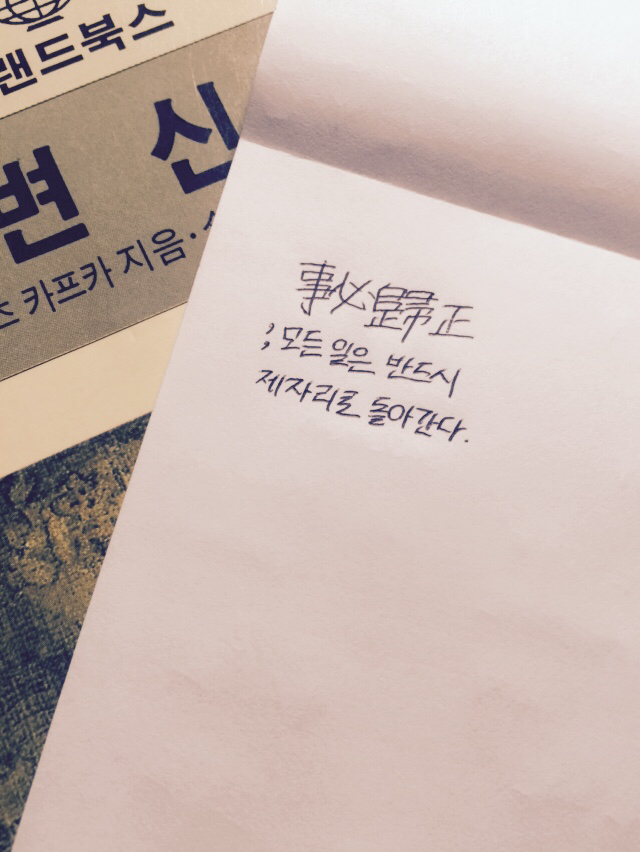 랜드북스
변 신
츠 카프카 지음·
事必歸正
; 모든 일은 반드시
제자리로 돌아간다.